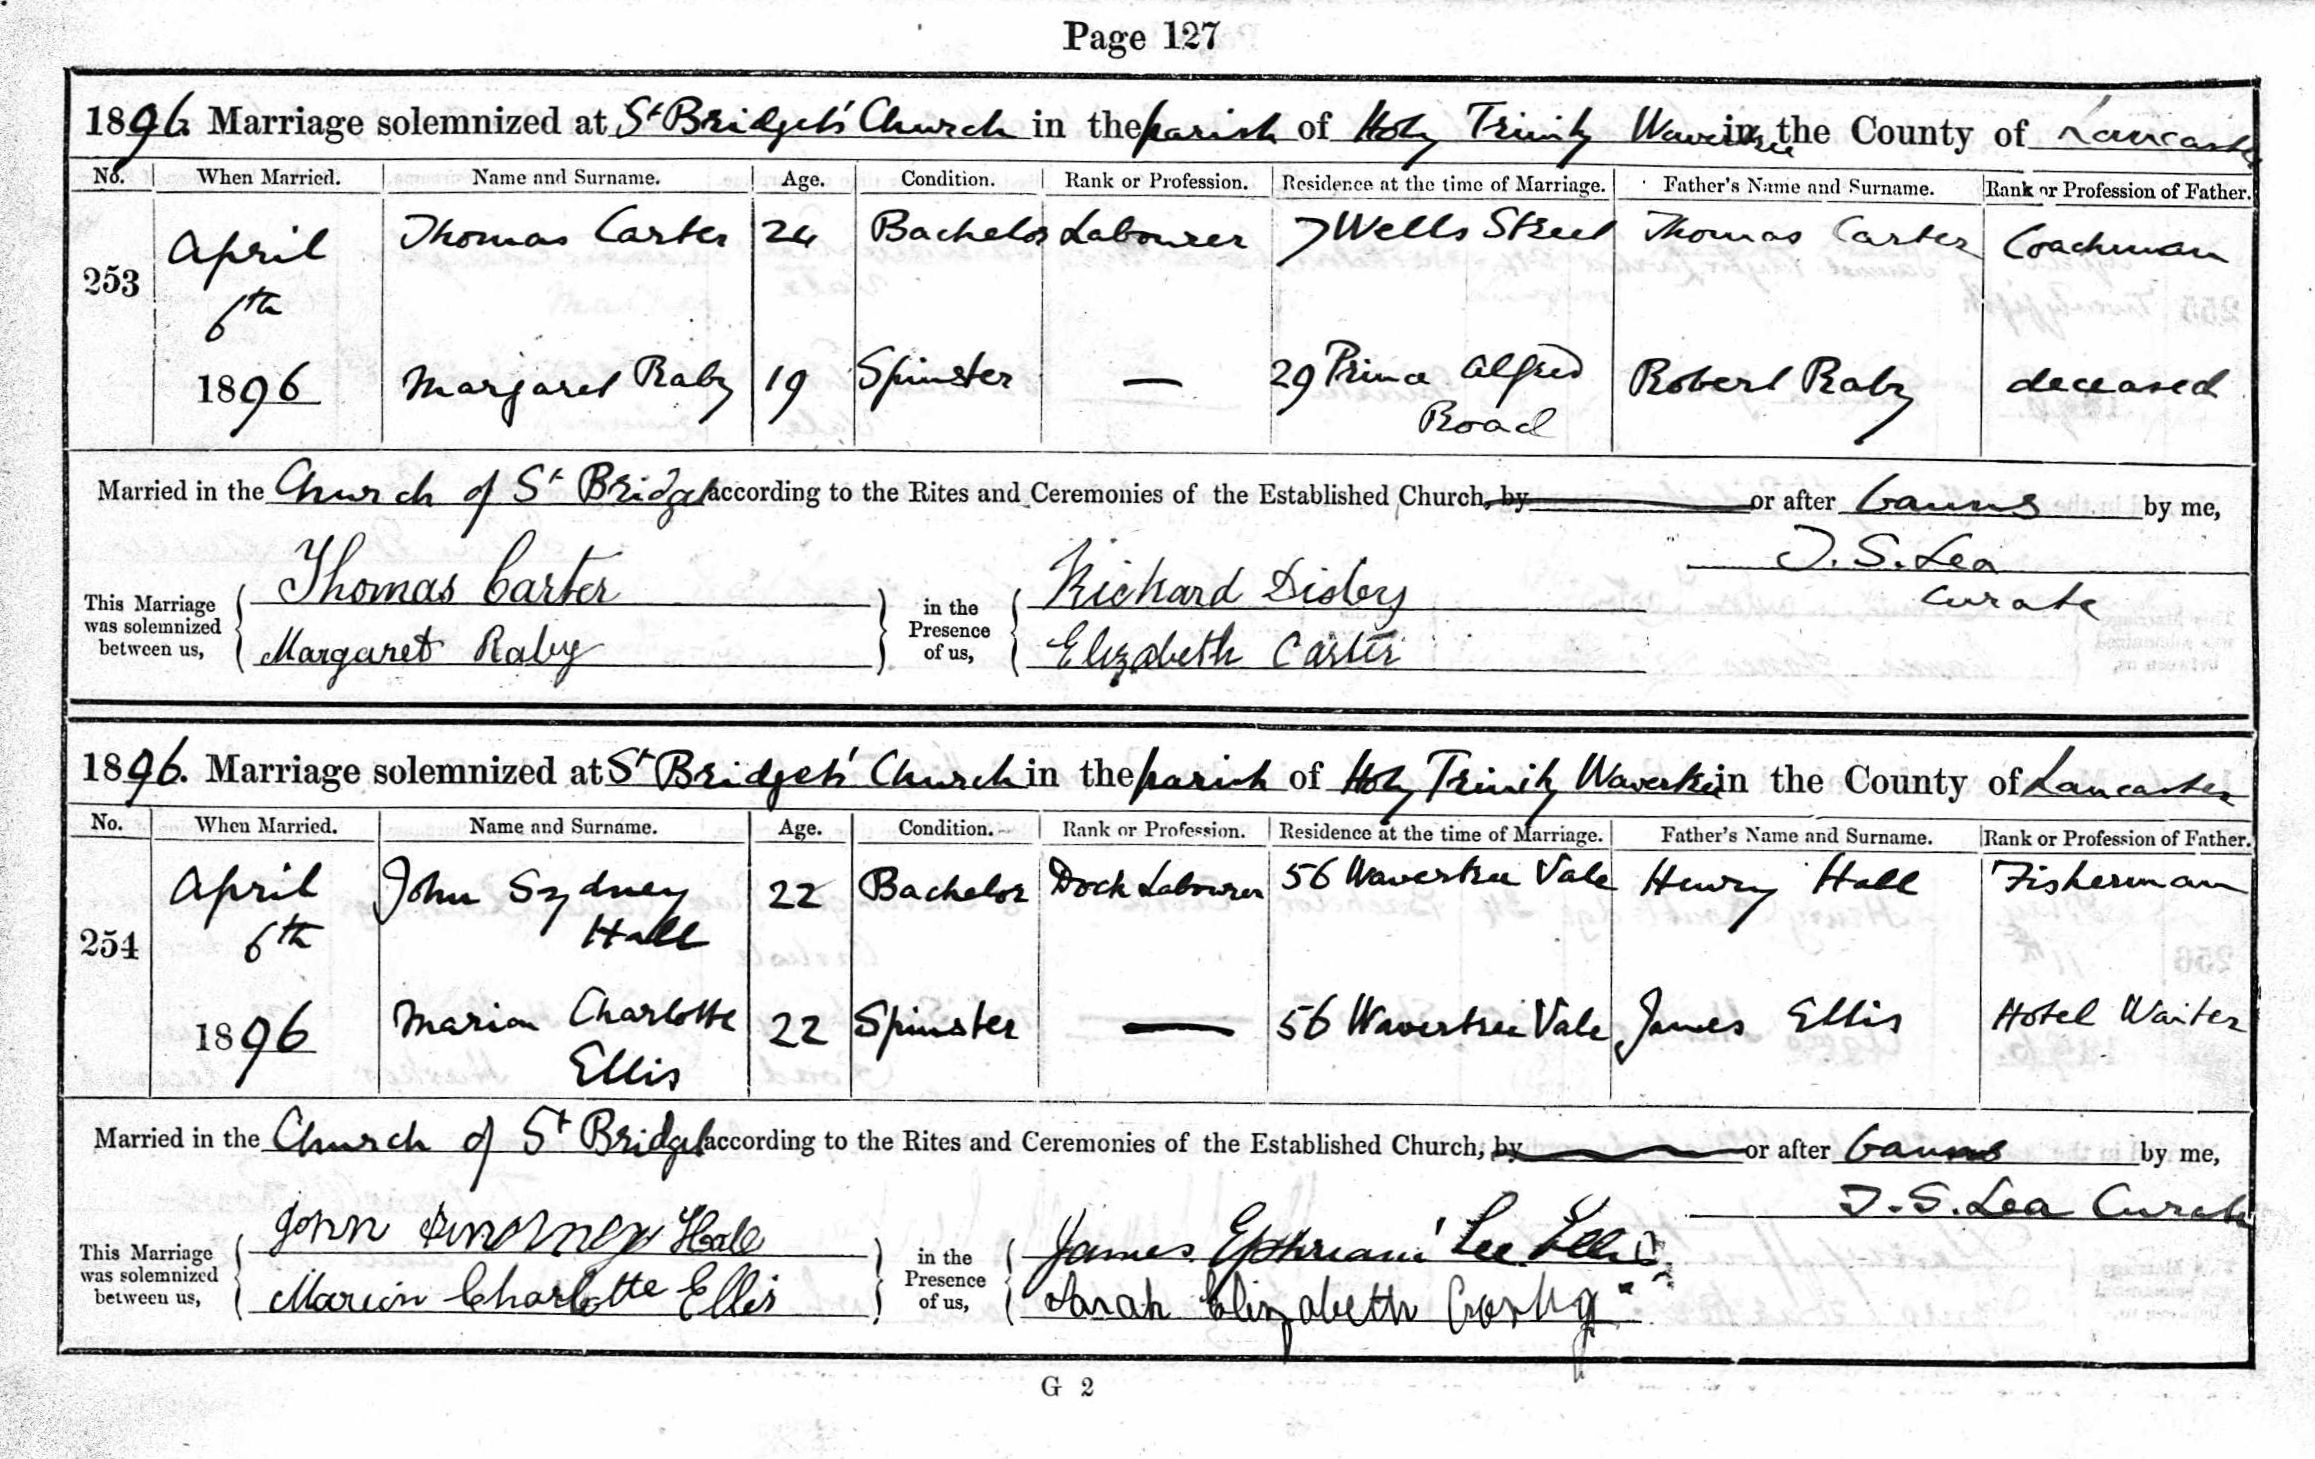 Page 127
1896. Marriage solemnized at St Bridget's Church in the parish of Holy Trinity Wavertree in the County of Lancaster
No. When Married. Name and Surname. Age. Condition. Rank or Profession. Residence at the time of Marriage. Father's Name and Surname. Rank or Profession of Father.
253 April 6th 1896 Thomas Carter 24 Bachelor Labourer 7 Wells Street Thomas Carter Coachman
Margaret Raby 19 Spinster — 29 Prince Alfred Road Robert Raby deceased
Married in the Church of St Bridget according to the Rites and Ceremonies of the Established Church, by or after banns by me,
T. S. Lea
Curate
This Marriage was solemnized between us, Thomas Carter Margaret Raby in the Presence of us, Richard Elizabeth Carter
1896. Marriage solemnized at St Bridget's Church in the parish of Holy Trinity Wavertree in the County of Lancaster
No. When Married. Name and Surname. Age. Condition. Rank or Profession. Residence at the time of Marriage. Father's Name and Surname. Rank or Profession of Father.
254 April 6th 1896 John Sydney Hall 22 Bachelor Dock Labourer 56 Wavertree Vale Henry Hall Fisherman
Marion Charlotte Ellis 22 Spinster — 56 Wavertree Vale James Ellis Hotel Waiter
Married in the Church of St Bridget according to the Rites and Ceremonies of the Established Church, by or after banns by me,
T. S. Lea Curate
This Marriage was solemnized between us, John Hall Marion Charlotte Ellis in the Presence of us, James Ephriam Lee Ellis Sarah Elizabeth
G 2